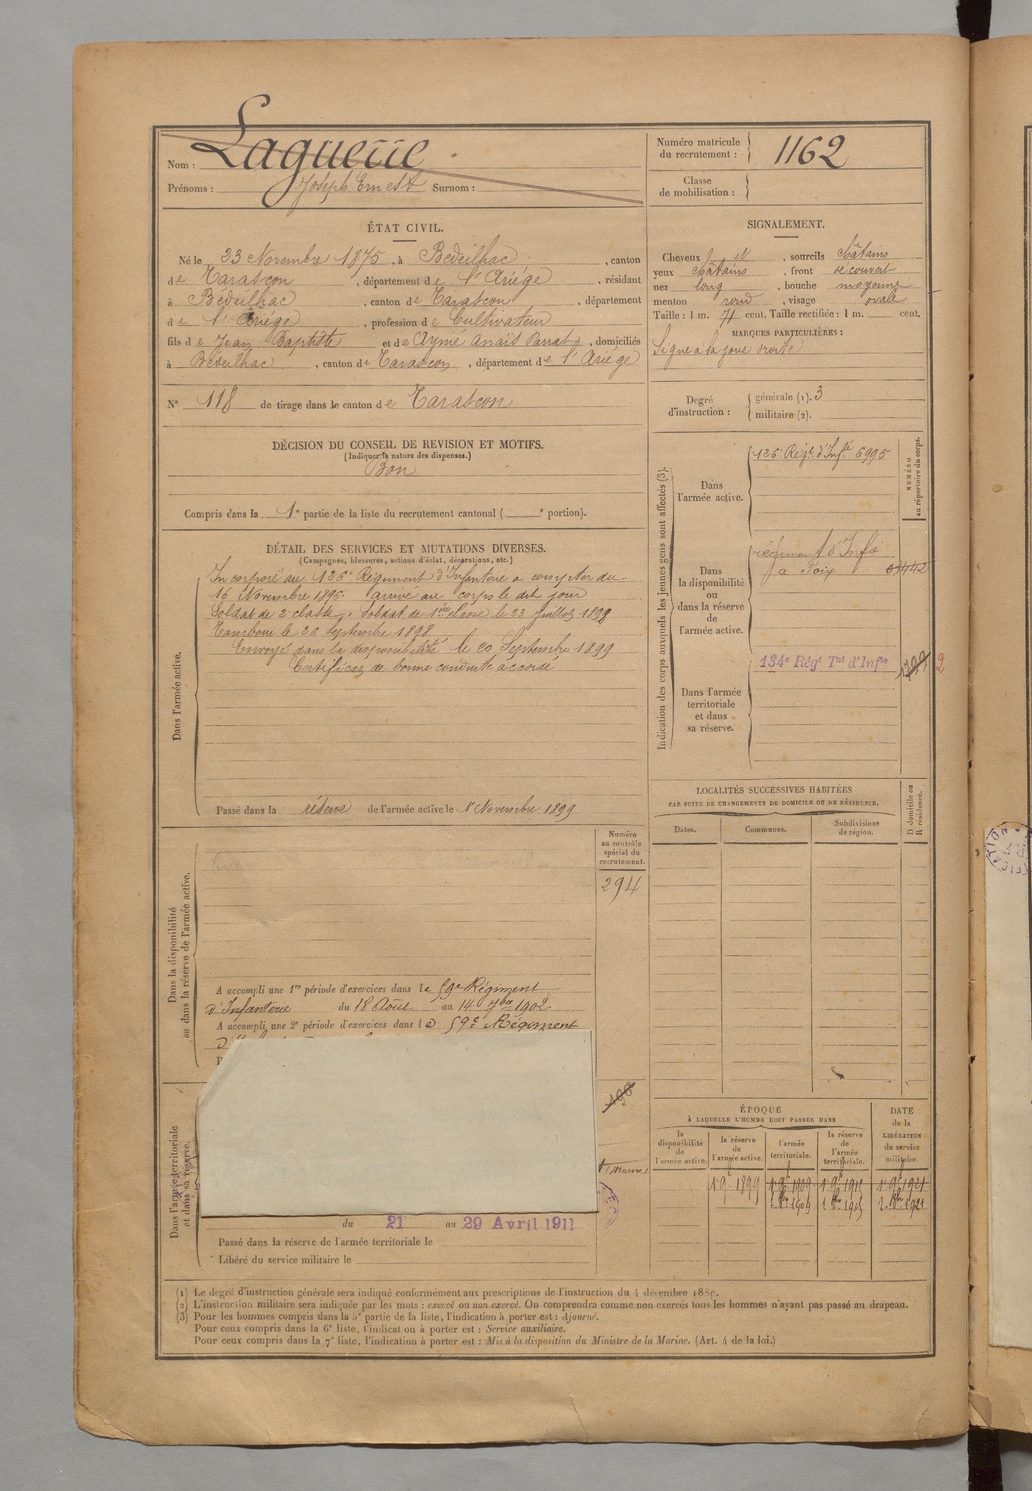 Nom : Laguerre
Prénoms : Joseph Ernest Surnom :
Numéro matricule du recrutement : 1162
Classe de mobilisation :
ÉTAT CIVIL.
Né le 23 Novembre 1875, à Bédeilhac, canton
de Tarascon, département de l'Ariége, résidant
à Bédeilhac, canton de Tarascon, département
de l'Ariége, profession de Cultivateur
fils de Jean Baptiste et de Aynié Anaïs, domiciliés
à Bédeilhac, canton de Tarascon, département de l'Ariége
N° 118 de tirage dans le canton de Tarascon
DÉCISION DU CONSEIL DE REVISION ET MOTIFS.
(Indiquer la nature des dispenses.)
Bon
Compris dans la 1e partie de la liste du recrutement cantonal ( e portion).
SIGNALEMENT.
Cheveux, sourcils châtains
yeux châtains, front découvert
nez long, bouche moyenne
menton rond, visage ovale
Taille : 1 m. 71 cent. Taille rectifiée : 1 m. cent.
MARQUES PARTICULIÈRES :
Signe à la joue droite
Degré d'instruction : générale (1). 3
militaire (2).
DÉTAIL DES SERVICES ET MUTATIONS DIVERSES.
(Campagnes, blessures, actions d'éclat, décorations, etc.)
Dans l'armée active.
Incorporé au 126e Régiment d'Infanterie à compter du
16 Novembre 1896. arrivé au corps le dit jour
Soldat de 2e classe. Soldat de 1ère classe le 23 Juillet 1898
Tambour le 26 Septembre 1898
Envoyé dans la disponibilité le 20 Septembre 1899
Certificat de bonne conduite accordé
Passé dans la réserve de l'armée active le 1r Novembre 1899
Indication des corps auxquels les jeunes gens sont affectés (3).
NUMÉRO au répertoire du corps.
Dans l'armée active.
126e Régt d'Infie 6995
Dans la disponibilité ou dans la réserve de l'armée active.
régiment d'Infie
à Foix
Dans l'armée territoriale et dans sa réserve.
134e Régt Tal d'Infie
2
LOCALITÉS SUCCESSIVES HABITÉES
PAR SUITE DE CHANGEMENTS DE DOMICILE OU DE RÉSIDENCE.
D domicile ou R résidence.
Dates. Communes. Subdivisions de région.
Numéro au contrôle spécial du recrutement.
294
Dans la disponibilité ou dans la réserve de l'armée active.
A accompli une 1re période d'exercices dans le 59e Régiment
d'Infanterie du 18 Août au 14 7bre 1902
A accompli une 2e période d'exercices dans le 59e Régiment
Dans l'armée territoriale et dans sa réserve.
du 21 au 29 Avril 1911
Passé dans la réserve de l'armée territoriale le
Libéré du service militaire le
ÉPOQUE
À LAQUELLE L'HOMME DOIT PASSER DANS
DATE de la LIBÉRATION du service militaire.
la disponibilité de l'armée active. la réserve de l'armée active. l'armée territoriale. la réserve de l'armée territoriale.
(1) Le degré d'instruction générale sera indiqué conformément aux prescriptions de l'instruction du 4 décembre
(2) L'instruction militaire sera indiquée par les mots : exercé ou non exercé. On comprendra comme non exercés tous les hommes n'ayant pas passé au drapeau.
(3) Pour les hommes compris dans la 5e partie de la liste, l'indication à porter est : Ajourné.
Pour ceux compris dans la 6e liste, l'indicat on à porter est : Service auxiliaire.
Pour ceux compris dans la 7e liste, l'indication à porter est : Mis à la disposition du Ministre de la Marine. (Art. 4 de la loi.)